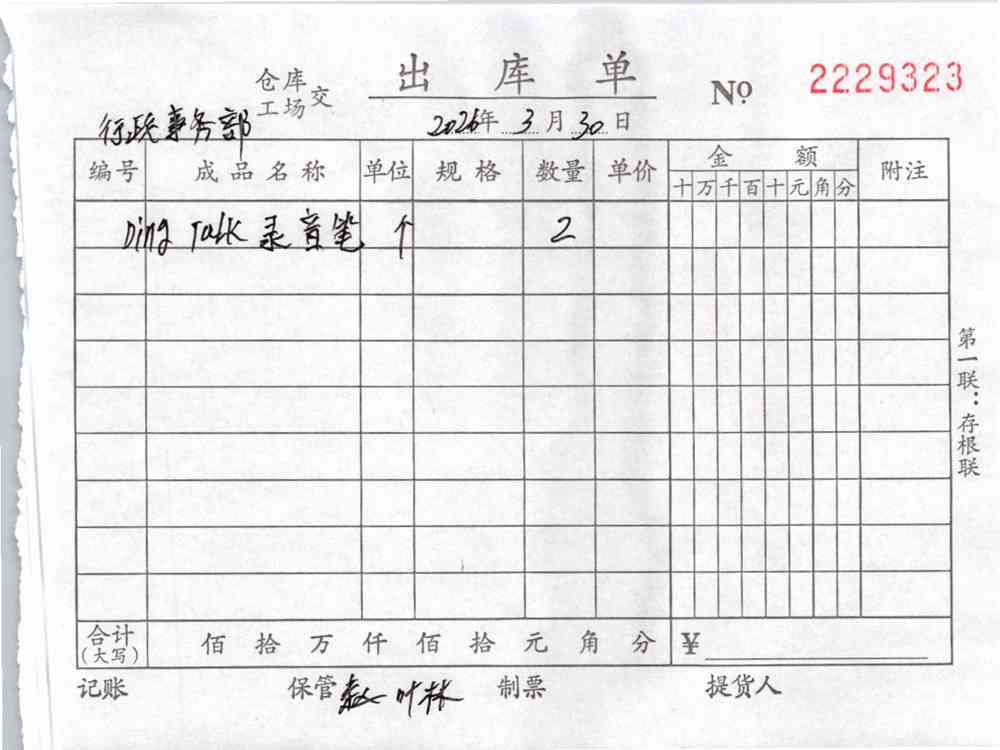 仓库
工场 交
出库单
№ 2229323
行政事务部
2026年3月30日
编号 成品名称 单位 规格 数量 单价 金额 附注
十 万 千 百 十 元 角 分
Ding Talk 录音笔 个 2
第一联：存根联
合计(大写) 佰 拾 万 仟 佰 拾 元 角 分 ¥
记账 保管 叶林 制票 提货人